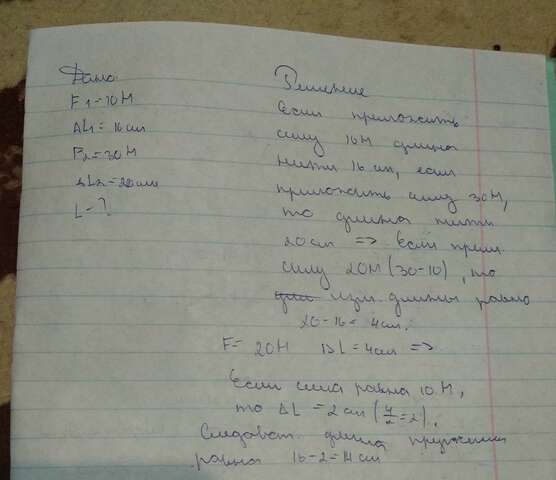 Дано
F1=10Н
ΔL1=16см
F2=30Н
ΔL2=20см
L-?
Решение
Если приложить
силу 16Н длина
нити 16 см, если
приложить силу 30Н,
то длина нити
20см => Если прил
силу 20Н (30-10), то
изм. длины равно
20-16= 4см.
F= 20Н ΔL=4см =>
Если сила равна 10Н,
то ΔL =2см (4/2=2).
Следоват. длина пружины
равна 16-2=14см